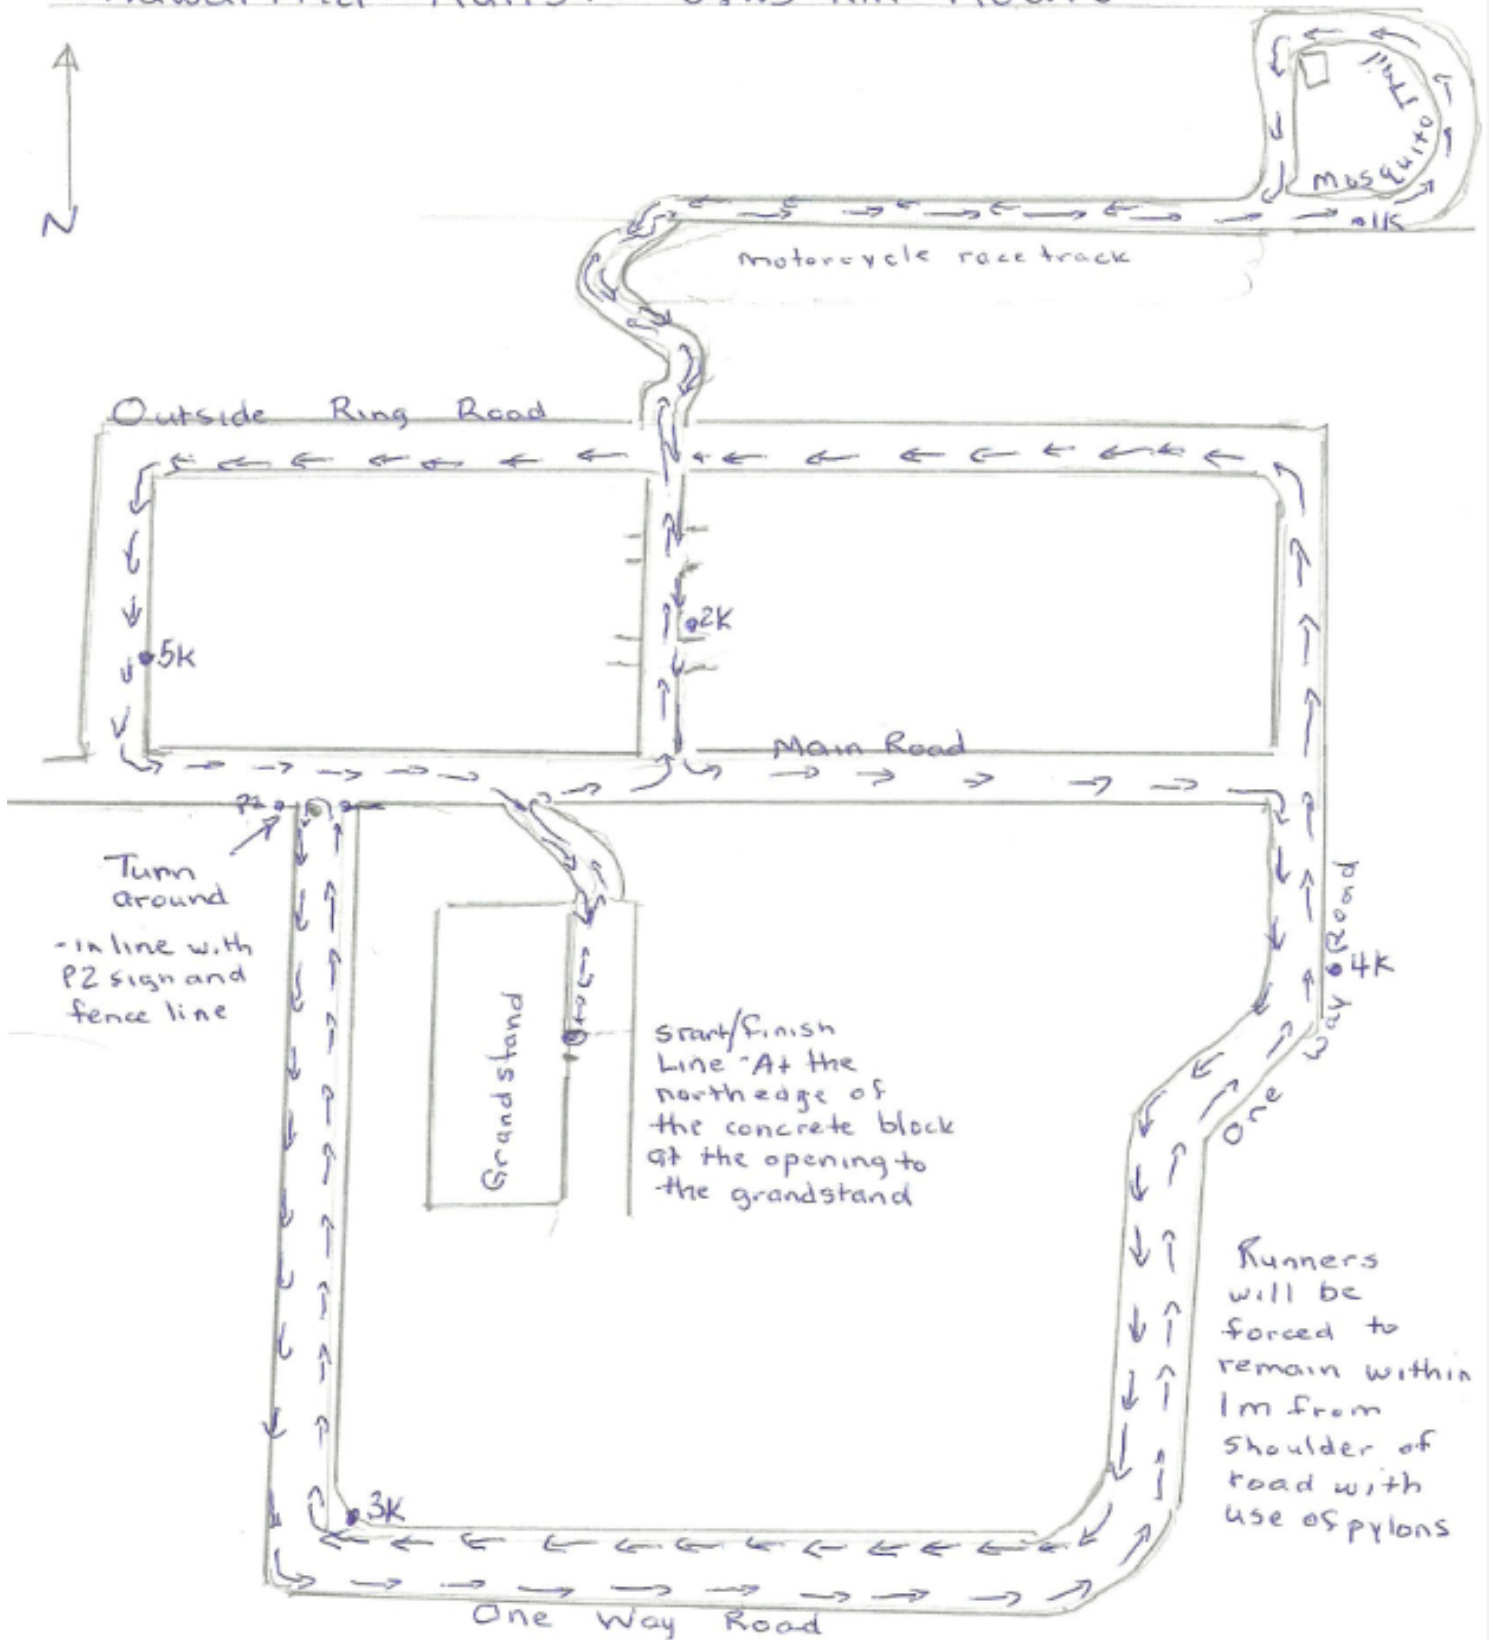 N
Mosquito Trail
1K
motorcycle race track
Outside Ring Road
2K
5K
Main Road
P2
Turn
around
- in line with
P2 sign and
fence line
One Way Road
4K
Grandstand
Start/finish
Line - At the
north edge of
the concrete block
at the opening to
the grandstand
Runners
will be
forced to
remain within
1m from
shoulder of
road with
use of pylons
3K
One Way Road